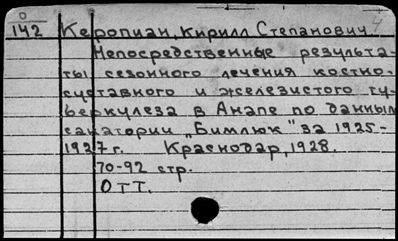 0
142 Керопиан, Кирилл Степанович
4
Непосредственные результа-
ты сезонного лечения костно-
суставного и железистого ту-
беркулеза в Анапе по данным
санатории „Бимлюк" за 1925-
1927 г. Краснодар, 1928.
70-92 стр.
ОТТ.